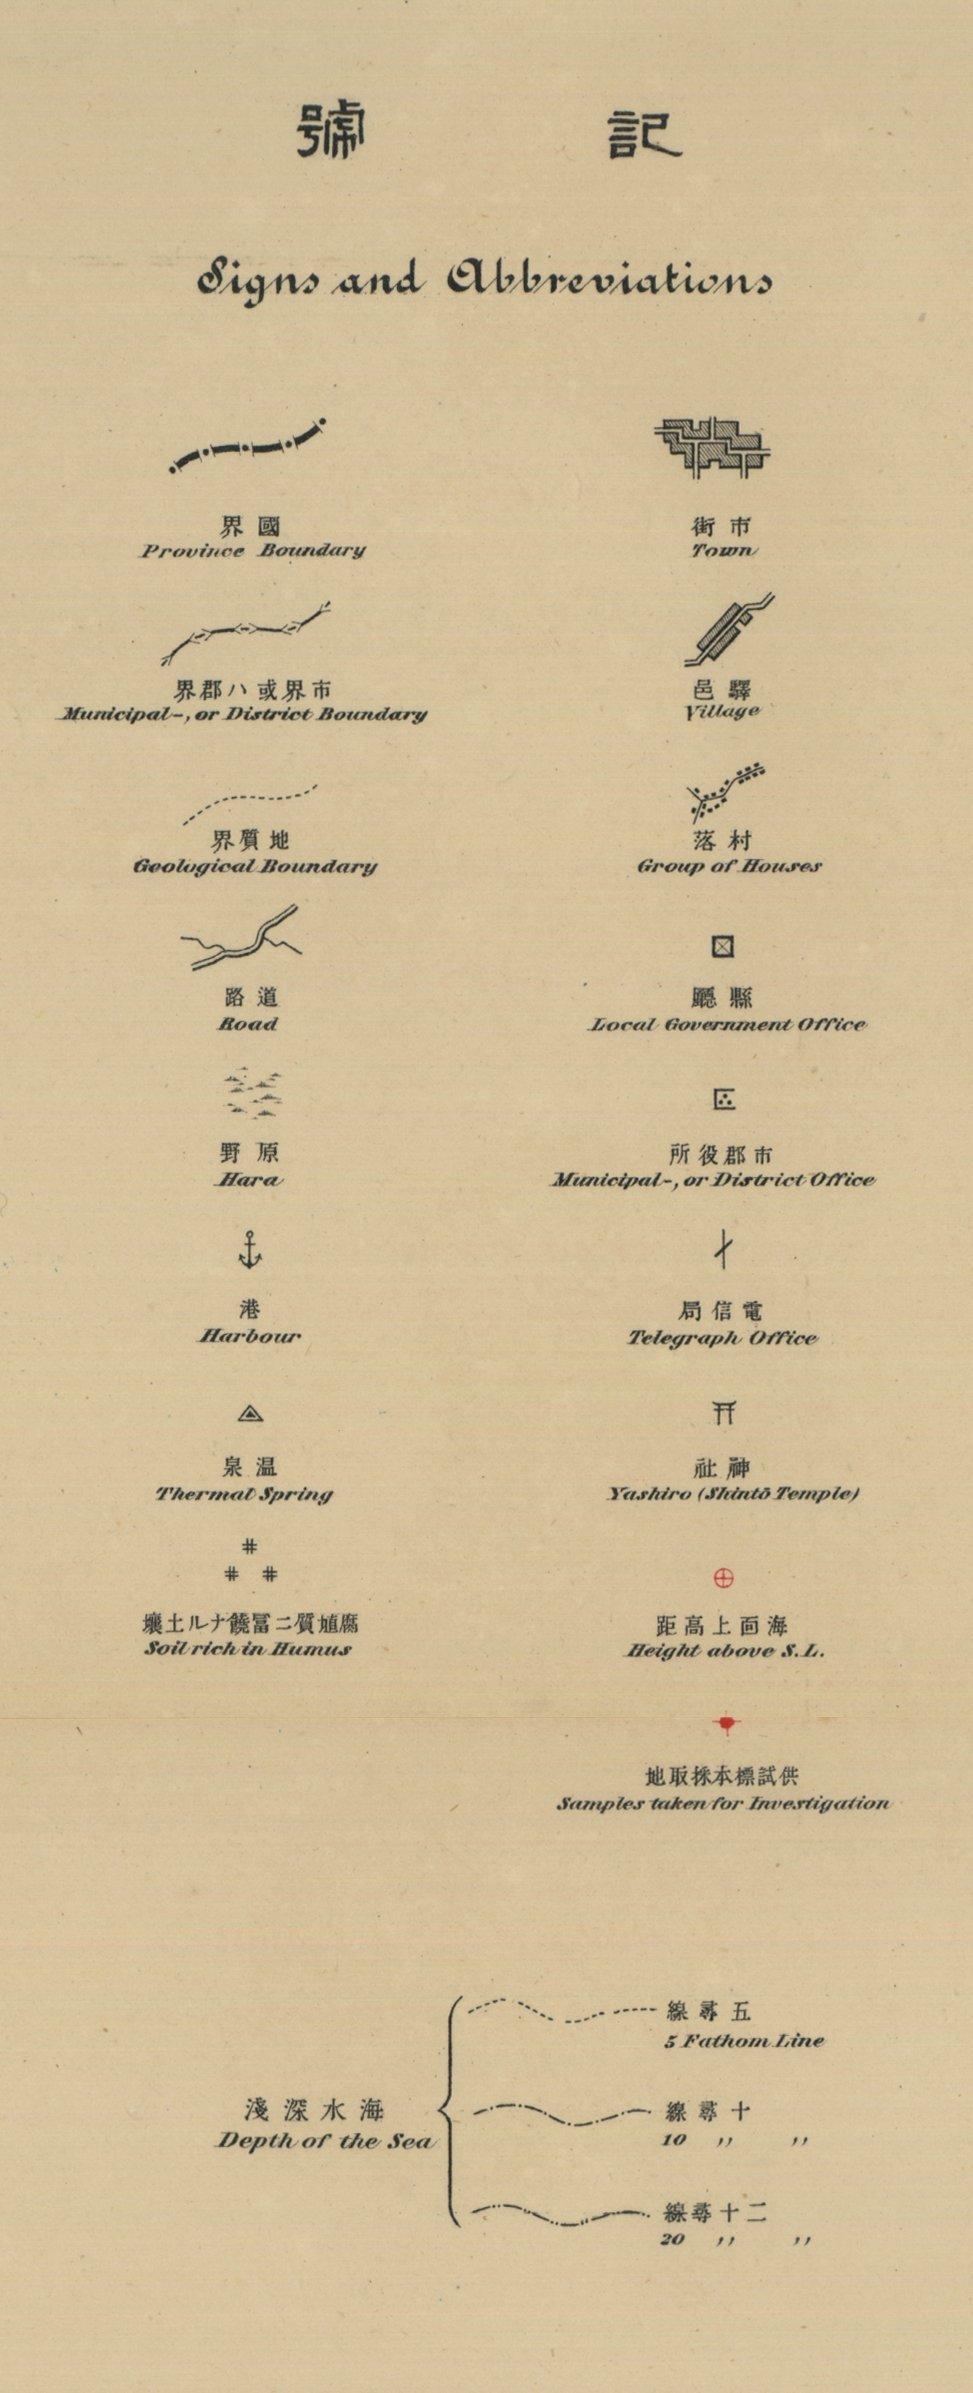 記號
Signs and Abbreviations
國界
Province Boundary
市界或ハ郡界
Municipal-, or District Boundary
地質界
Geological Boundary
道路
Road
原野
Hara
港
Harbour
温泉
Thermal Spring
腐埴質ニ冨饒ナル土壤
Soil rich in Humus
市街
Town
驛邑
Village
村落
Group of Houses
縣廳
Local Government Office
市郡役所
Municipal-, or District Office
電信局
Telegraph Office
神社
Yashiro (Shintō Temple)
海面上高距
Height above S.L.
供試標本採取地
Samples taken for Investigation
海水深淺
Depth of the Sea
五尋線
5 Fathom Line
十尋線
10 〃 〃
二十尋線
20 〃 〃